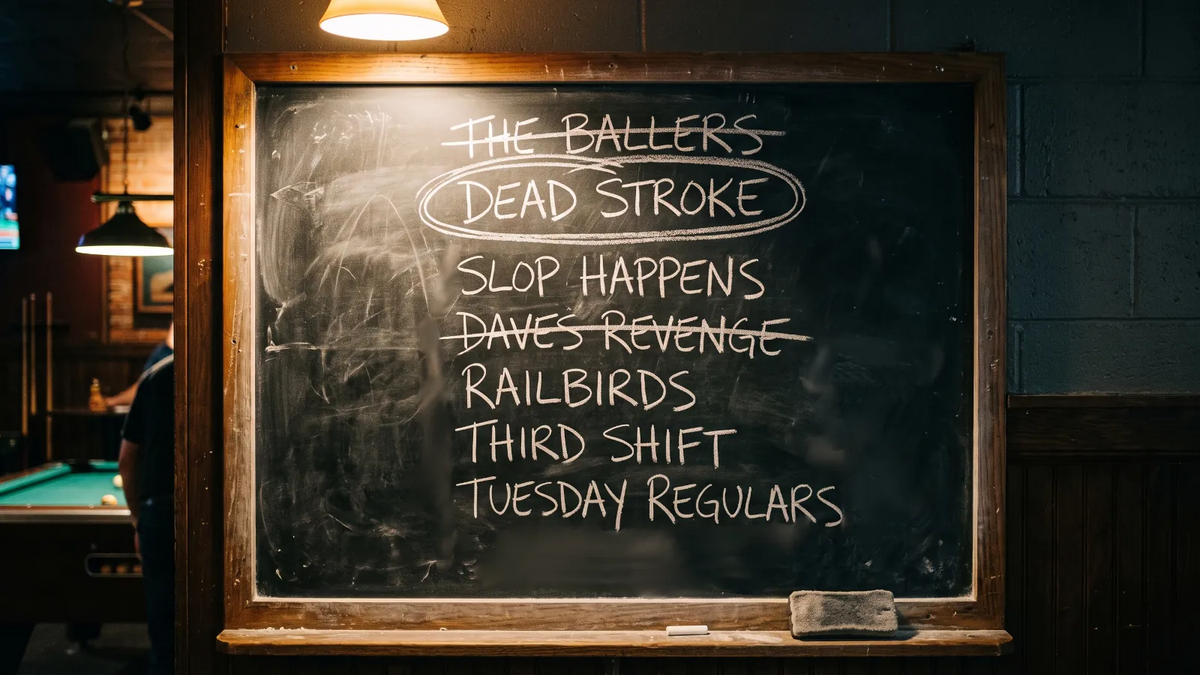 THE BALLERS
DEAD STROKE
SLOP HAPPENS
DAVES REVENGE
RAILBIRDS
THIRD SHIFT
TUESDAY REGULARS